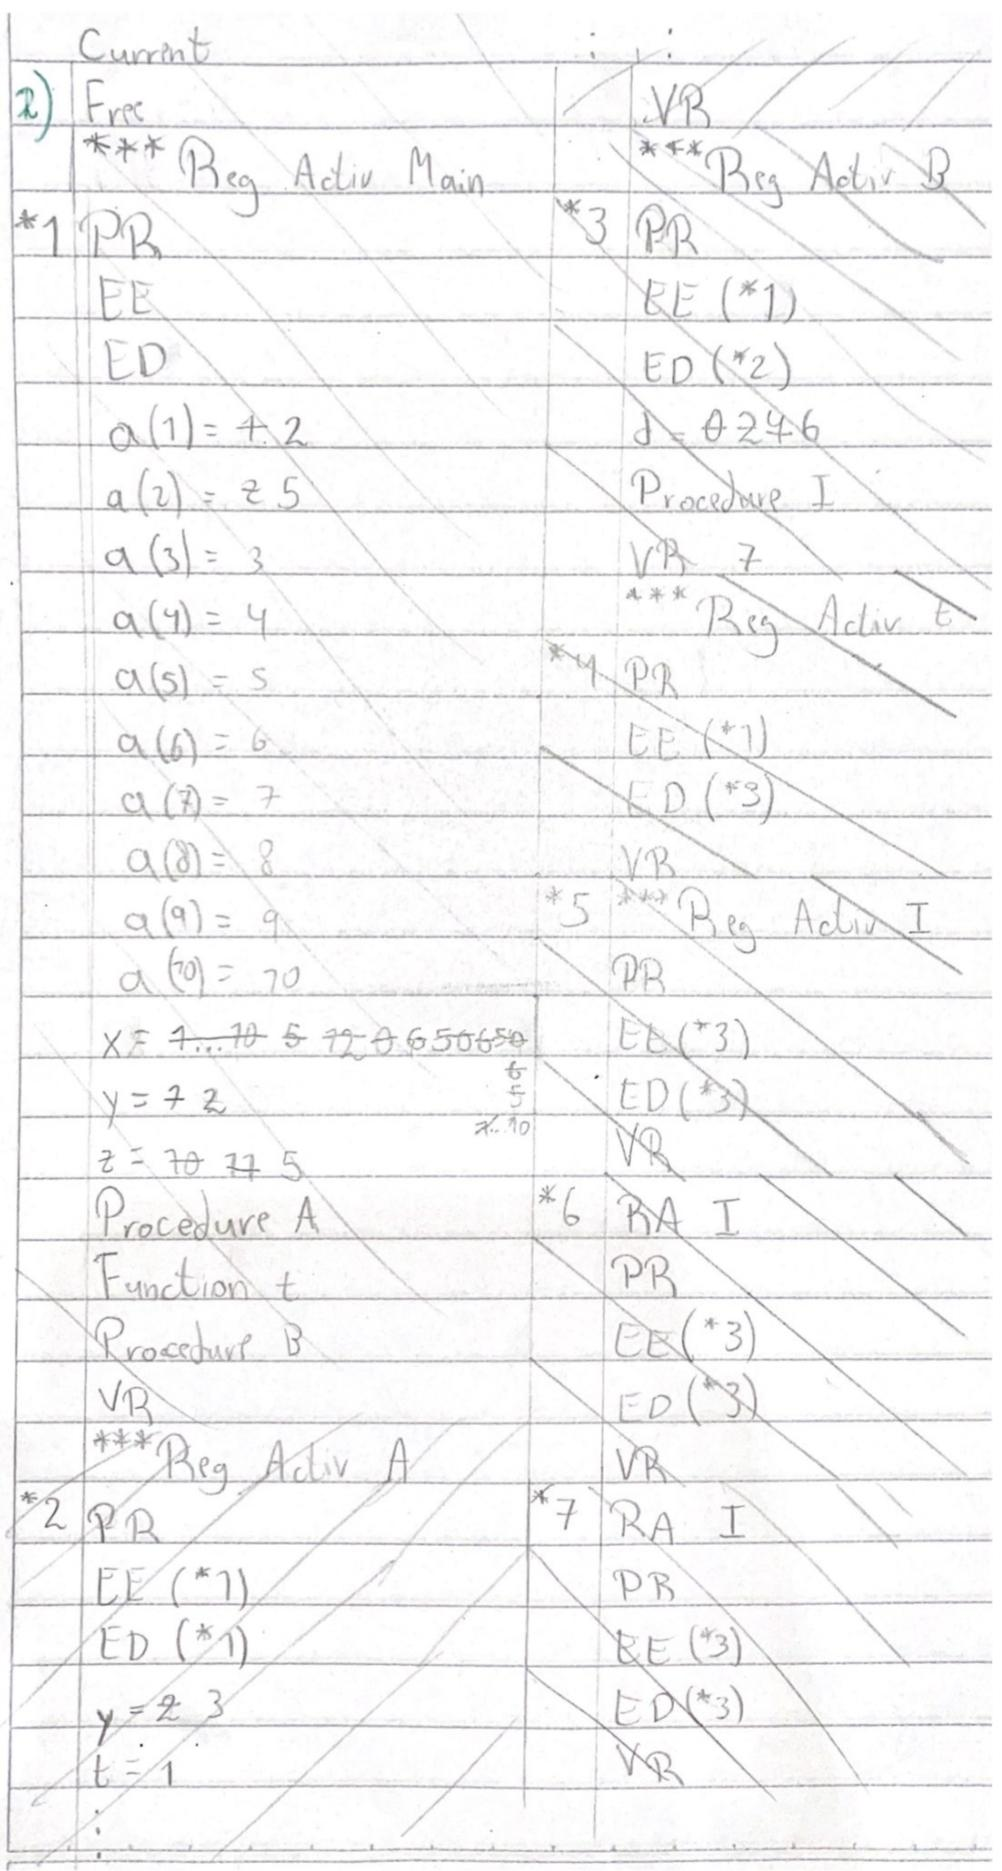 Current
2) Free
*** Reg Activ Main
*1 PR
EE
ED
a(1) = 1 2
a(2) = 2 5
a(3) = 3
a(4) = 4
a(5) = 5
a(6) = 6
a(7) = 7
a(8) = 8
a(9) = 9
a(10) = 10
x = 1...10 5 12 0 6 5 0 6 5 0
6
5
1...10
y = 1 2
z = 10 11 5
Procedure A
Function t
Procedure B
VR
*** Reg Activ A
*2 PR
EE (*1)
ED (*1)
y = 2 3
t = 1
:
:
VR
*** Reg Activ B
*3 PR
EE (*1)
ED (*2)
d = 0 2 4 6
Procedure I
VR 7
*** Reg Activ t
*4 PR
EE (*1)
ED (*3)
VR
*5 *** Reg Activ I
PR
EE (*3)
ED (*3)
VR
*6 RA I
PR
EE (*3)
ED (*3)
VR
*7 RA I
PR
EE (*3)
ED (*3)
VR